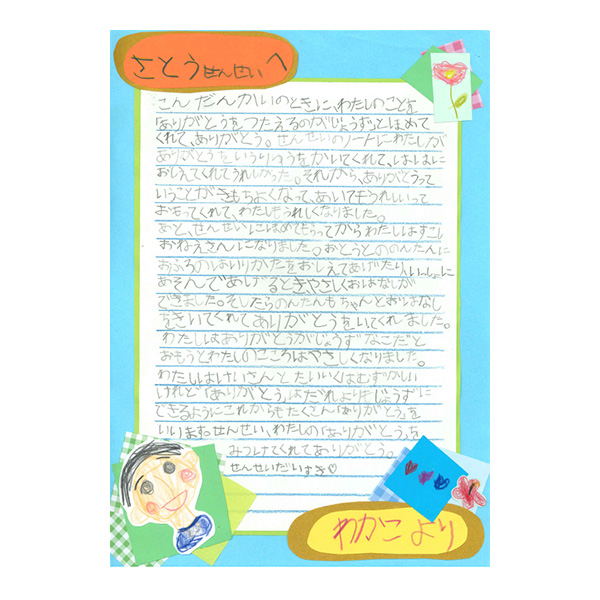 さとうせんせいへ
こんだんかいのときに、わたしのことを
「ありがとうをつたえるのがじょうず」とほめて
くれて、ありがとう。せんせいのノートにわたしが
ありがとうをいうりゆうをかいてくれて、ははに
おしえてくれてうれしかった。それから、ありがとうって
いうことがきもちよくなって、あいてもうれしいって
おもってくれて、わたしもうれしくなりました。
あと、せんせいにほめてもらってからわたしはすこし
おねえさんになりました。おとうとののんたんに
おふろのはいりかたをおしえてあげたり、いっしょに
あそんであげるときやさしくおはなしが
できました。そしたらのんたんもちゃんとおはなし
をきいてくれてありがとうをいてくれました。
わたしはありがとうがじょうずなこだと
おもうとわたしのこころはやさしくなりました。
わたしはけいさんとたいいくはむずかしい
けれど「ありがとう」はだれよりもじょうずに
できるようにこれからもたくさん「ありがとう」を
いいます。せんせい、わたしの「ありがとう」を
みつけてくれてありがとう。
せんせいだいすき♡
わかこより